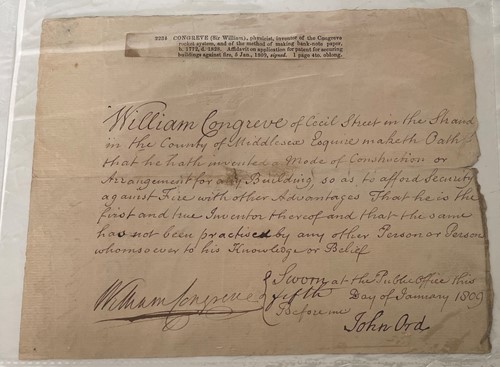 2234 CONGREVE (Sir William), physicist, inventor of the Congreve
rocket system, and of the method of making bank-note paper,
b. 1772, d. 1828. Affidavit on application for patent for securing
buildings against fire, 5 Jan., 1809, signed. 1 page 4to. oblong.
William Congreve of Cecil Street in the Strand
in the County of Middlesex Esquire maketh Oath
that he hath invented a Mode of Construction or
Arrangement for any Building, so as to afford Security
against Fire with other Advantages That he is the
first and true Inventor thereof and that the same
has not been practised by any other Person or Persons
whomsoever to his Knowledge or Belief
William Congreve
Sworn at the Public Office this
fifth Day of January 1809
Before me
John Ord